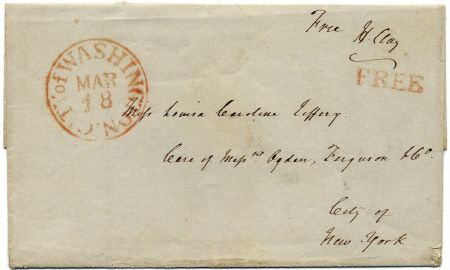 Free H. Clay
CITY of WASHINGTON.
MAR
18
FREE
Miss Louisa Caroline
Care of Messrs Ogden, Ferguson & Co.
City of
New York